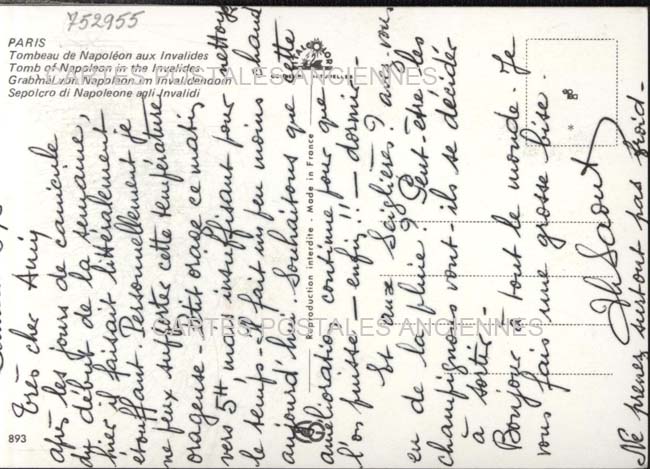 752955
PARIS
Tombeau de Napoléon aux Invalides
Tomb of Napoleon in the Invalides
Grabmal von Napoleon im Invalidendom
Sepolcro di Napoleone agli Invalidi
CARTES POSTALES ANCIENNES
CARTES POSTALES ANCIENNES
Reproduction interdite - Made in France
893
Très cher Amy
après les jours de canicule
du début de la semaine,
hier il faisait littéralement
étouffant. Personnellement je
ne peux supporter cette température
orageuse - Petit orage ce matin
vers 5H mais insuffisant pour nettoyer
le temps - Il fait un peu moins chaud
aujourd'hui. Souhaitons que cette
amélioration continue pour que
l'on puisse — enfin !! — dormir -
Et vous ? avez-vous
eu de la pluie ? Peut-être les
champignons vont-ils se décider
à sortir -
Bonjour à tout le monde - Je
vous fais une grosse bise.
Ne prenez surtout pas froid -